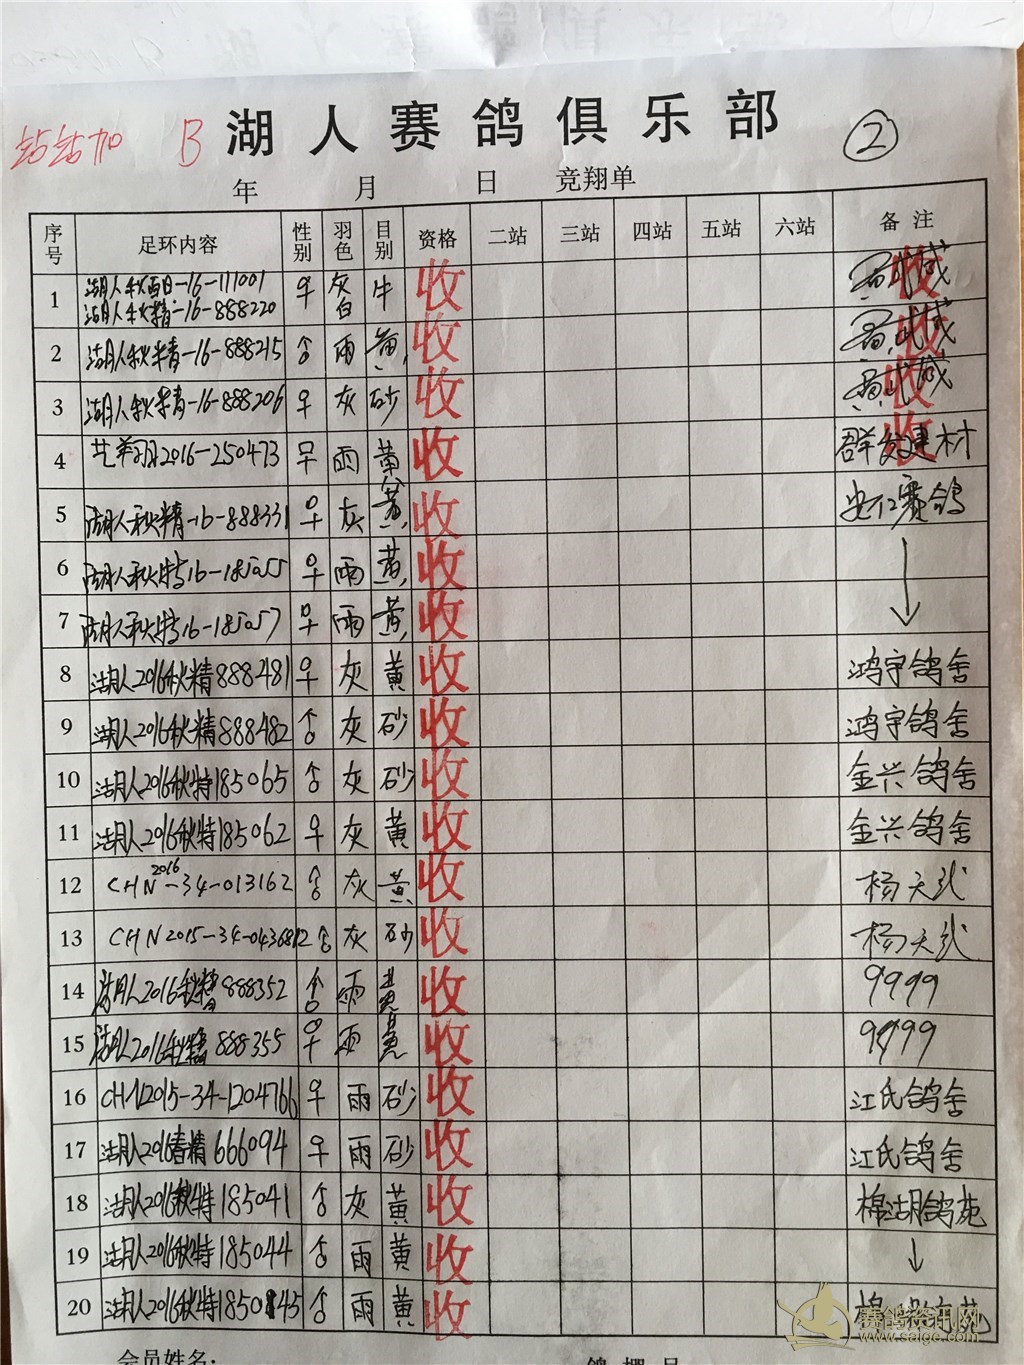 站站加 B 湖人赛鸽俱乐部 ②
年 月 日 竞翔单
序号 足环内容 性别 羽色 目别 资格 二站 三站 四站 五站 六站 备注
1 湖人秋百日-16-111001 ♀ 灰白 牛 收 收
湖人秋精-16-888220
2 湖人秋精-16-888215 雨 黄 收 收
3 湖人秋精-16-888206 ♀ 灰 砂 收 收
4 2016-250473 早 雨 黄 收 群发建材 收
5 湖人秋精-16-888331 ♀ 灰 黄 收 赛鸽
6 湖人秋特16-185055 ♀ 雨 黄 收 ↓
7 湖人秋特16-185057 ♀ 雨 黄 收
8 湖人2016秋精888481 ♀ 灰 黄 收 鸿宇鸽舍
9 湖人2016秋精888482 合 灰 砂 收 鸿宇鸽舍
10 湖人2016秋特185065 合 灰 砂 收 金兴鸽舍
11 湖人2016秋特185062 ♀ 灰 黄 收 金兴鸽舍
12 CHN2016-34-013162 合 灰 黄 收 杨天武
13 CHN2015-34-0436812 合 灰 砂 收 杨天武
14 湖人2016秋精888352 合 雨 黄 收 9999
15 湖人2016秋精888355 ♀ 雨 黄 收 9999
16 CHN2015-34-1204766 ♀ 雨 砂 收 江氏鸽舍
17 湖人2016春精666094 ♀ 雨 砂 收 江氏鸽舍
18 湖人2016秋特185041 合 灰 黄 收 棉湖鸽苑
19 湖人2016秋特185044 合 雨 黄 收 ↓
20 湖人2016秋特185045 合 雨 黄 收
赛鸽资讯网
www.saige.com
会员姓名: